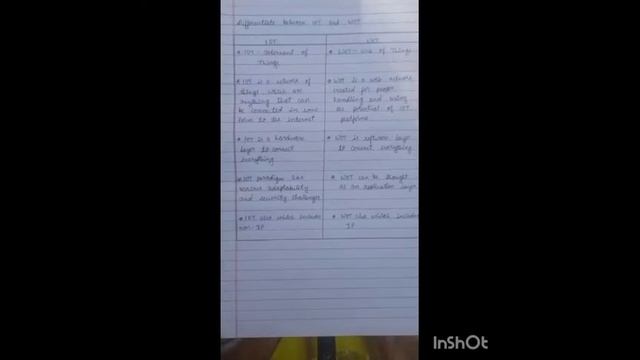 Differentiate between IOT and WOT
IOT
WOT
* IOT - Internet of
Things
* WOT - Web of Things
* IOT is a network of
things which are
anything that can
be connected in some
form to the internet
* WOT is a web network
created for proper
handling and using
the potential of IOT
platforms
* IOT is a hardware
layer to connect
everything
* WOT is software layer
to connect everything
* IOT paradigm has
various adaptability
and security challenges
* WOT can be thought
as an application layer
* IOT also which includes
non-IP
* WOT also which includes
IP
InShOt